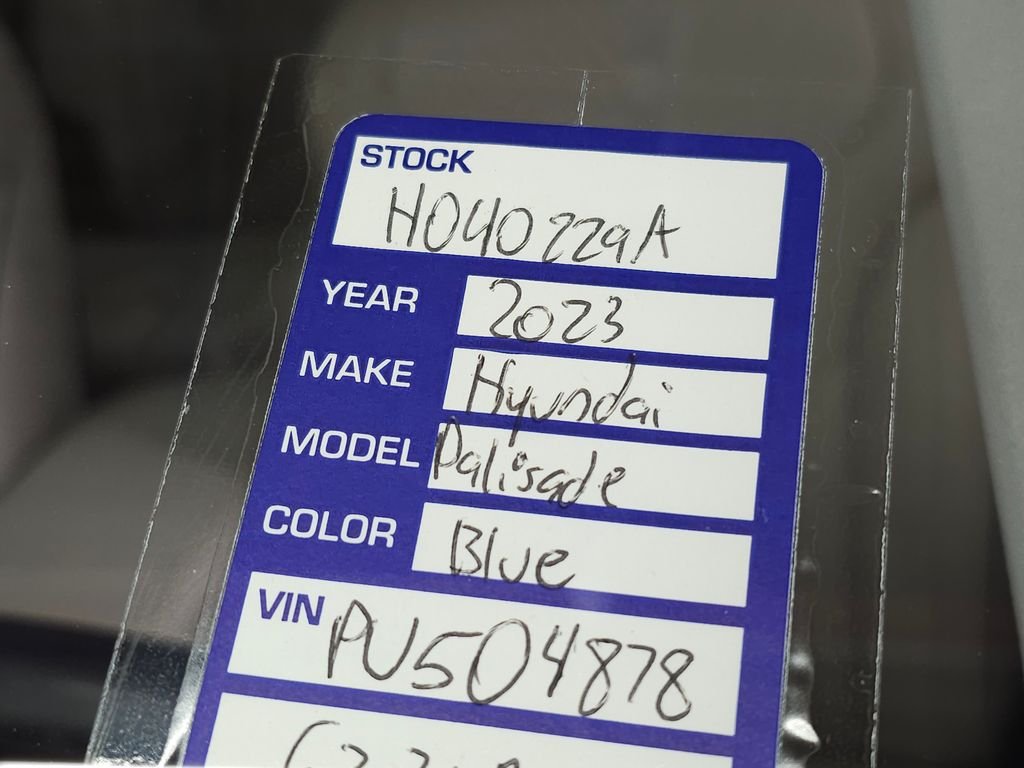 STOCK
H040229A
YEAR 2023
MAKE Hyundai
MODEL Palisade
COLOR Blue
VIN PU504878